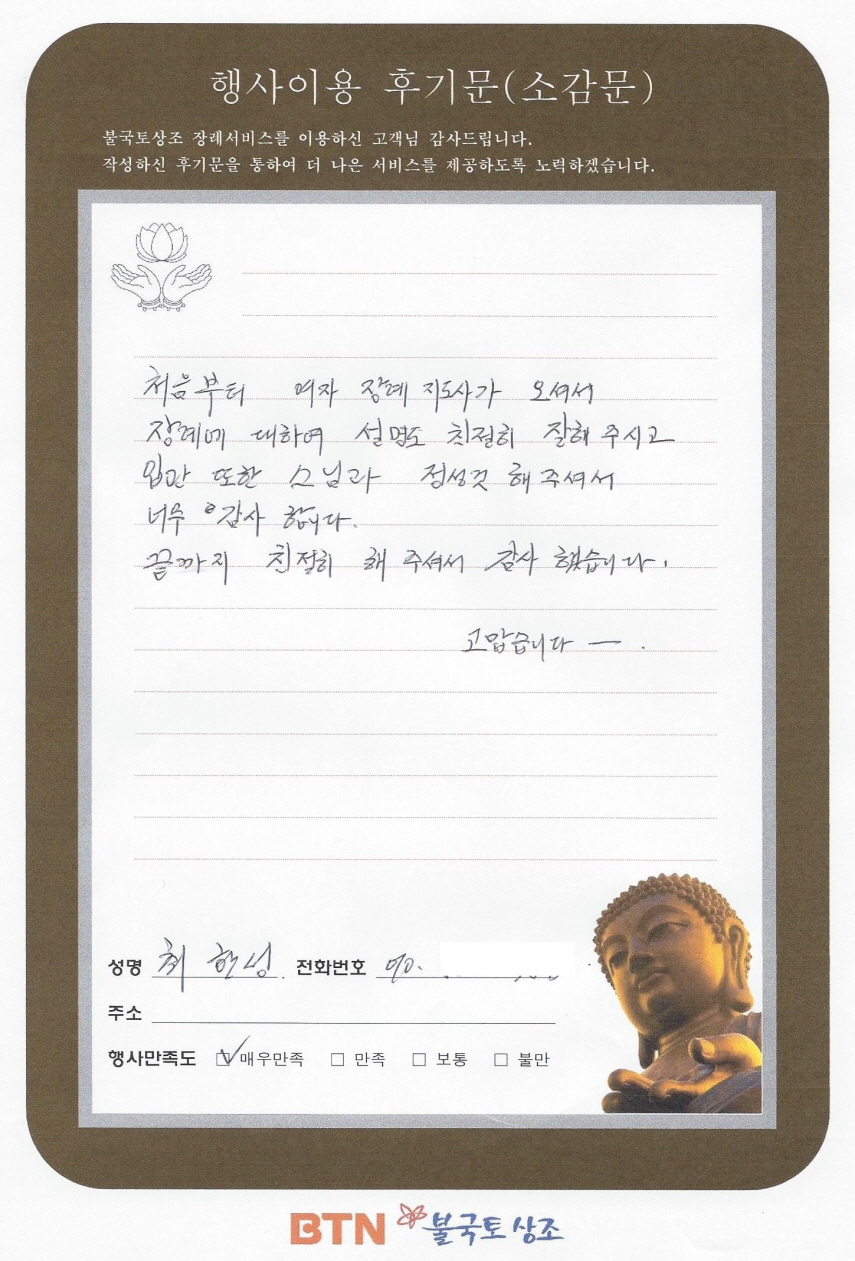 행사이용 후기문(소감문)
불국토상조 장례서비스를 이용하신 고객님 감사드립니다.
작성하신 후기문을 통하여 더 나은 서비스를 제공하도록 노력하겠습니다.
처음부터 여자 장례 지도사가 오셔서
장례에 대하여 설명도 친절히 잘해 주시고
입관 또한 스님과 정성것 해 주셔서
너무 감사 합니다.
끝까지 친절히 해 주셔서 감사 했습니다.
고맙습니다 ㅡ.
성명 최 한성 전화번호 010.
주소
행사만족도 매우만족 만족 보통 불만
BTN 불국토 상조